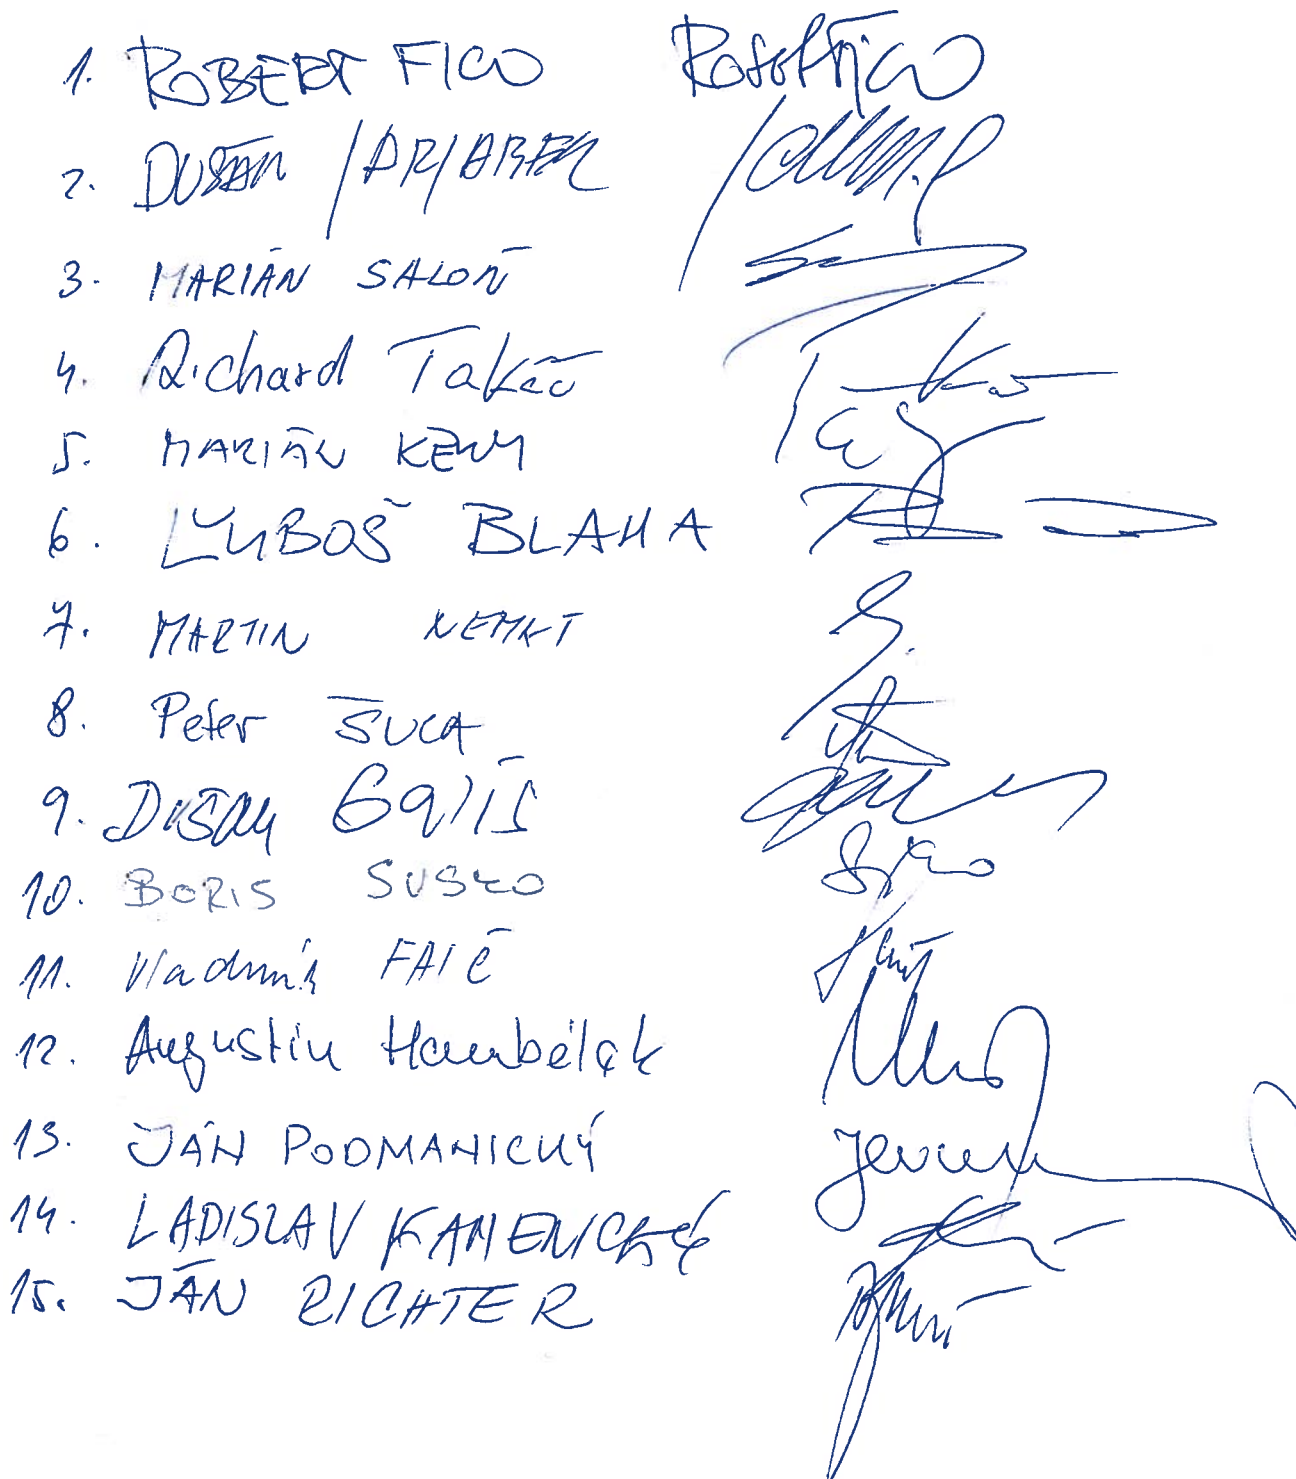 1. ROBERT FICO Robert Fico
2. DUŠAN JARJABEK
3. MARIÁN SALOŇ
4. Richard Takáč
5. MARIÁN KÉRY
6. ĽUBOŠ BLAHA
7. MARTIN NEMKY
8. Peter ŠUCA
9. DUŠAN Galis
10. BORIS SUSKO
11. Vladimír FAIČ
12. Augustín Hambálek
13. JÁN PODMANICKÝ
14. LADISLAV KAMENICKÝ
15. JÁN RICHTER